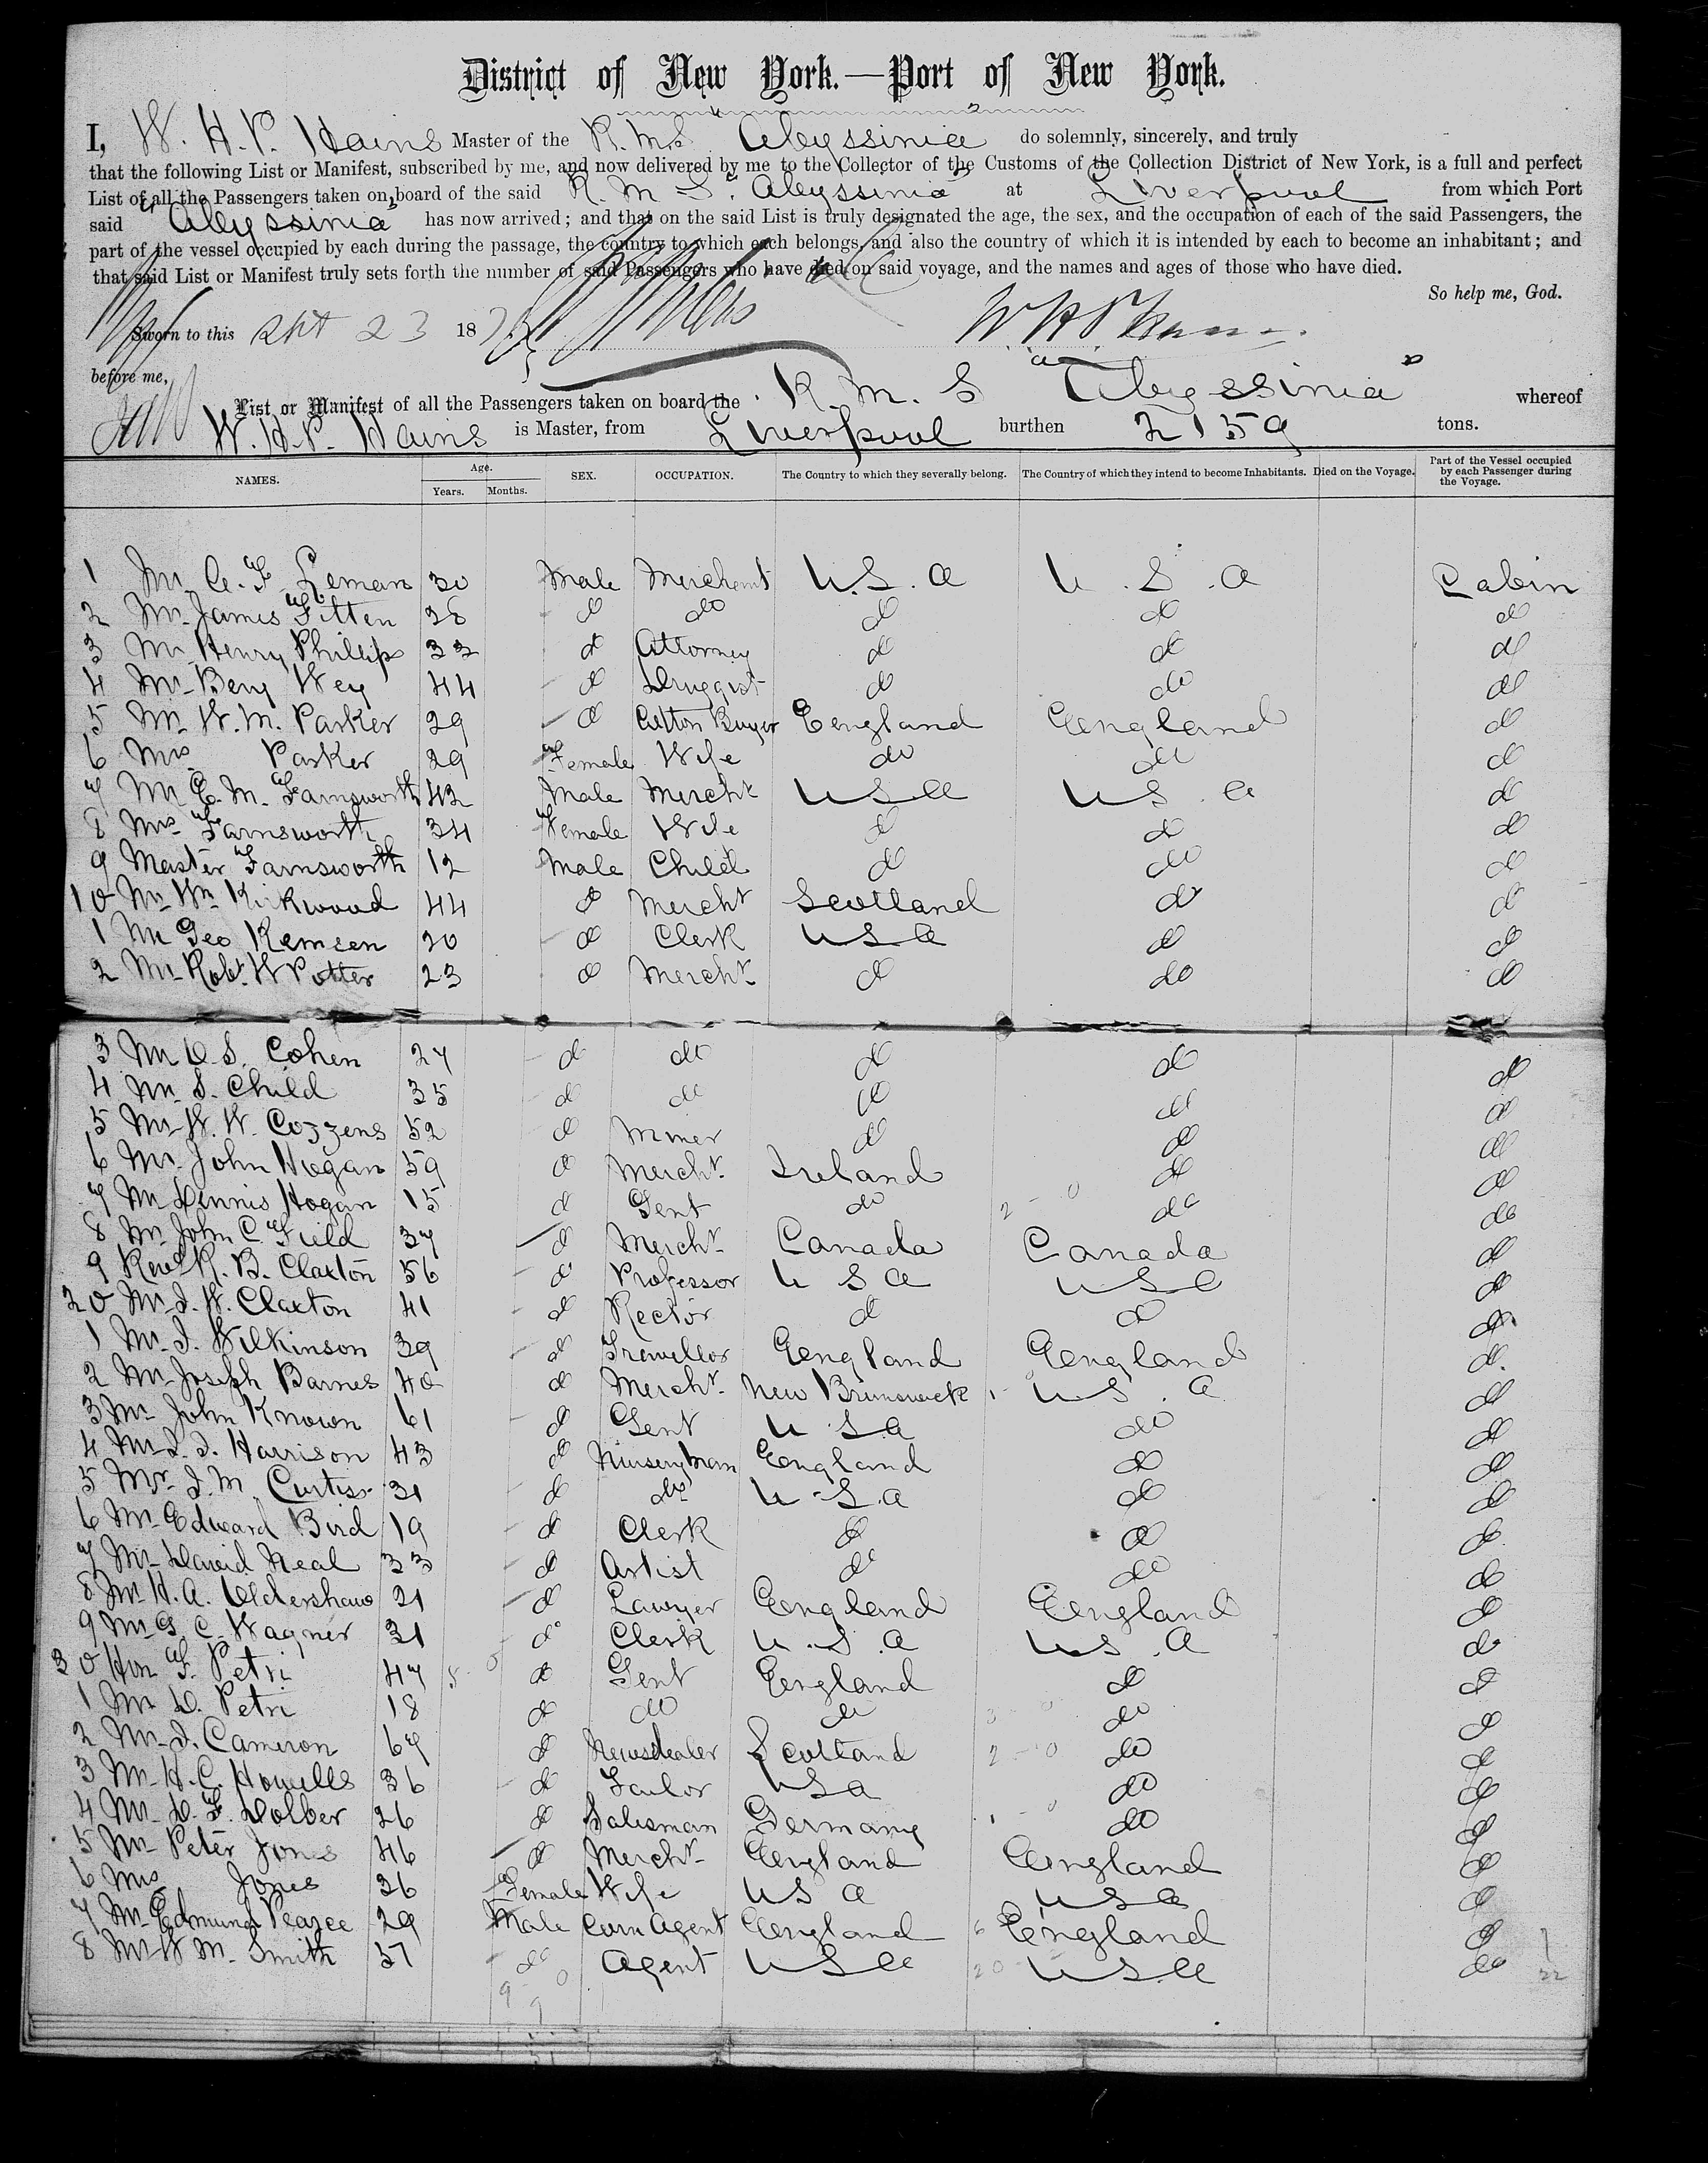 District of New York.—Port of New York.
I, W. H. P. Hains Master of the R.M.S. Abyssinia do solemnly, sincerely, and truly
that the following List or Manifest, subscribed by me, and now delivered by me to the Collector of the Customs of the Collection District of New York, is a full and perfect
List of all the Passengers taken on board of the said R. M. S. "Abyssinia" at Liverpool from which Port
said "Abyssinia" has now arrived; and that on the said List is truly designated the age, the sex, and the occupation of each of the said Passengers, the
part of the vessel occupied by each during the passage, the country to which each belongs, and also the country of which it is intended by each to become an inhabitant; and
that said List or Manifest truly sets forth the number of said Passengers who have died on said voyage, and the names and ages of those who have died.
So help me, God.
Sworn to this Sept 23 187
before me,
List or Manifest of all the Passengers taken on board the R. M. S "Abyssinia" whereof
W. H. P. Hains is Master, from Liverpool burthen 2159 tons.
NAMES. Age. Years. Months. SEX. OCCUPATION. The Country to which they severally belong. The Country of which they intend to become Inhabitants. Died on the Voyage. Part of the Vessel occupied by each Passenger during the Voyage.
1 Mr. A. F. Leman 30 Male Merchant U.S.A U.S.A Cabin
2 Mr. James Fitten 28 do do do do do
3 Mr Henry Phillips 33 do Attorney do do do
4 Mr Benj Wey 44 do Druggist do do do
5 Mr. W. M. Parker 29 do Cotton Buyer England England do
6 Mrs Parker 29 Female Wife do do do
7 Mr E. M. Farnsworth 42 Male Mercht USA US A do
8 Mrs Farnsworth 34 Female Wife do do do
9 Master Farnsworth 12 Male Child do do do
10 Mr Wm Kirkwood 44 do Mercht Scotland do do
1 Mr Geo Remsen 20 do Clerk USA do do
2 Mr Robt. W Potter 23 do Mercht do do do
3 Mr D. S. Cohen 27 do do do do do
4 Mr S. Child 35 do do do do do
5 Mr W. W. Cozzens 52 do Miner do do do
6 Mr. John Hogan 59 do Mercht. Ireland do do
7 Mr Dennis Hogan 15 do Gent do do do
8 Mr John C. Field 37 do Mercht Canada Canada do
9 Revd R. B. Claxton 56 do Professor U S A USA do
20 Mr. J. W. Claxton 41 do Rector do do do
1 Mr. J. Wilkinson 39 do Traveller England England do
2 Mr Joseph Barnes 40 do Mercht. New Brunswick U S. A do
3 Mr John Known 61 do Gent U S A do do
4 Mr J. J. Harrison 43 do Nurseryman England do do
5 Mr. J. M. Curtiss 31 do do U S.A do do
6 Mr Edward Bird 19 do Clerk do do do
7 Mr David Neal 33 do Artist do do do
8 Mr. H. A. Oldershaw 21 do Lawyer England England do
9 Mr G. C. Wagner 31 do Clerk U.S.A US.A do
30 Hon F. Petri 47 do Gent England do do
1 Mr D. Petri 18 do do do do do
2 Mr J. Cameron 67 do Newsdealer Scotland do do
3 Mr H. C. Howells 36 do Tailor USA do do
4 Mr D. F. Dolber 26 do Salesman Germany do do
5 Mr Peter Jones 46 do Mercht England England do
6 Mrs Jones 26 Female Wife US A USA do
7 Mr Edmund Pearce 29 Male Corn Agent England England do
8 Mr W M. Smith 37 do Agent USA USA do